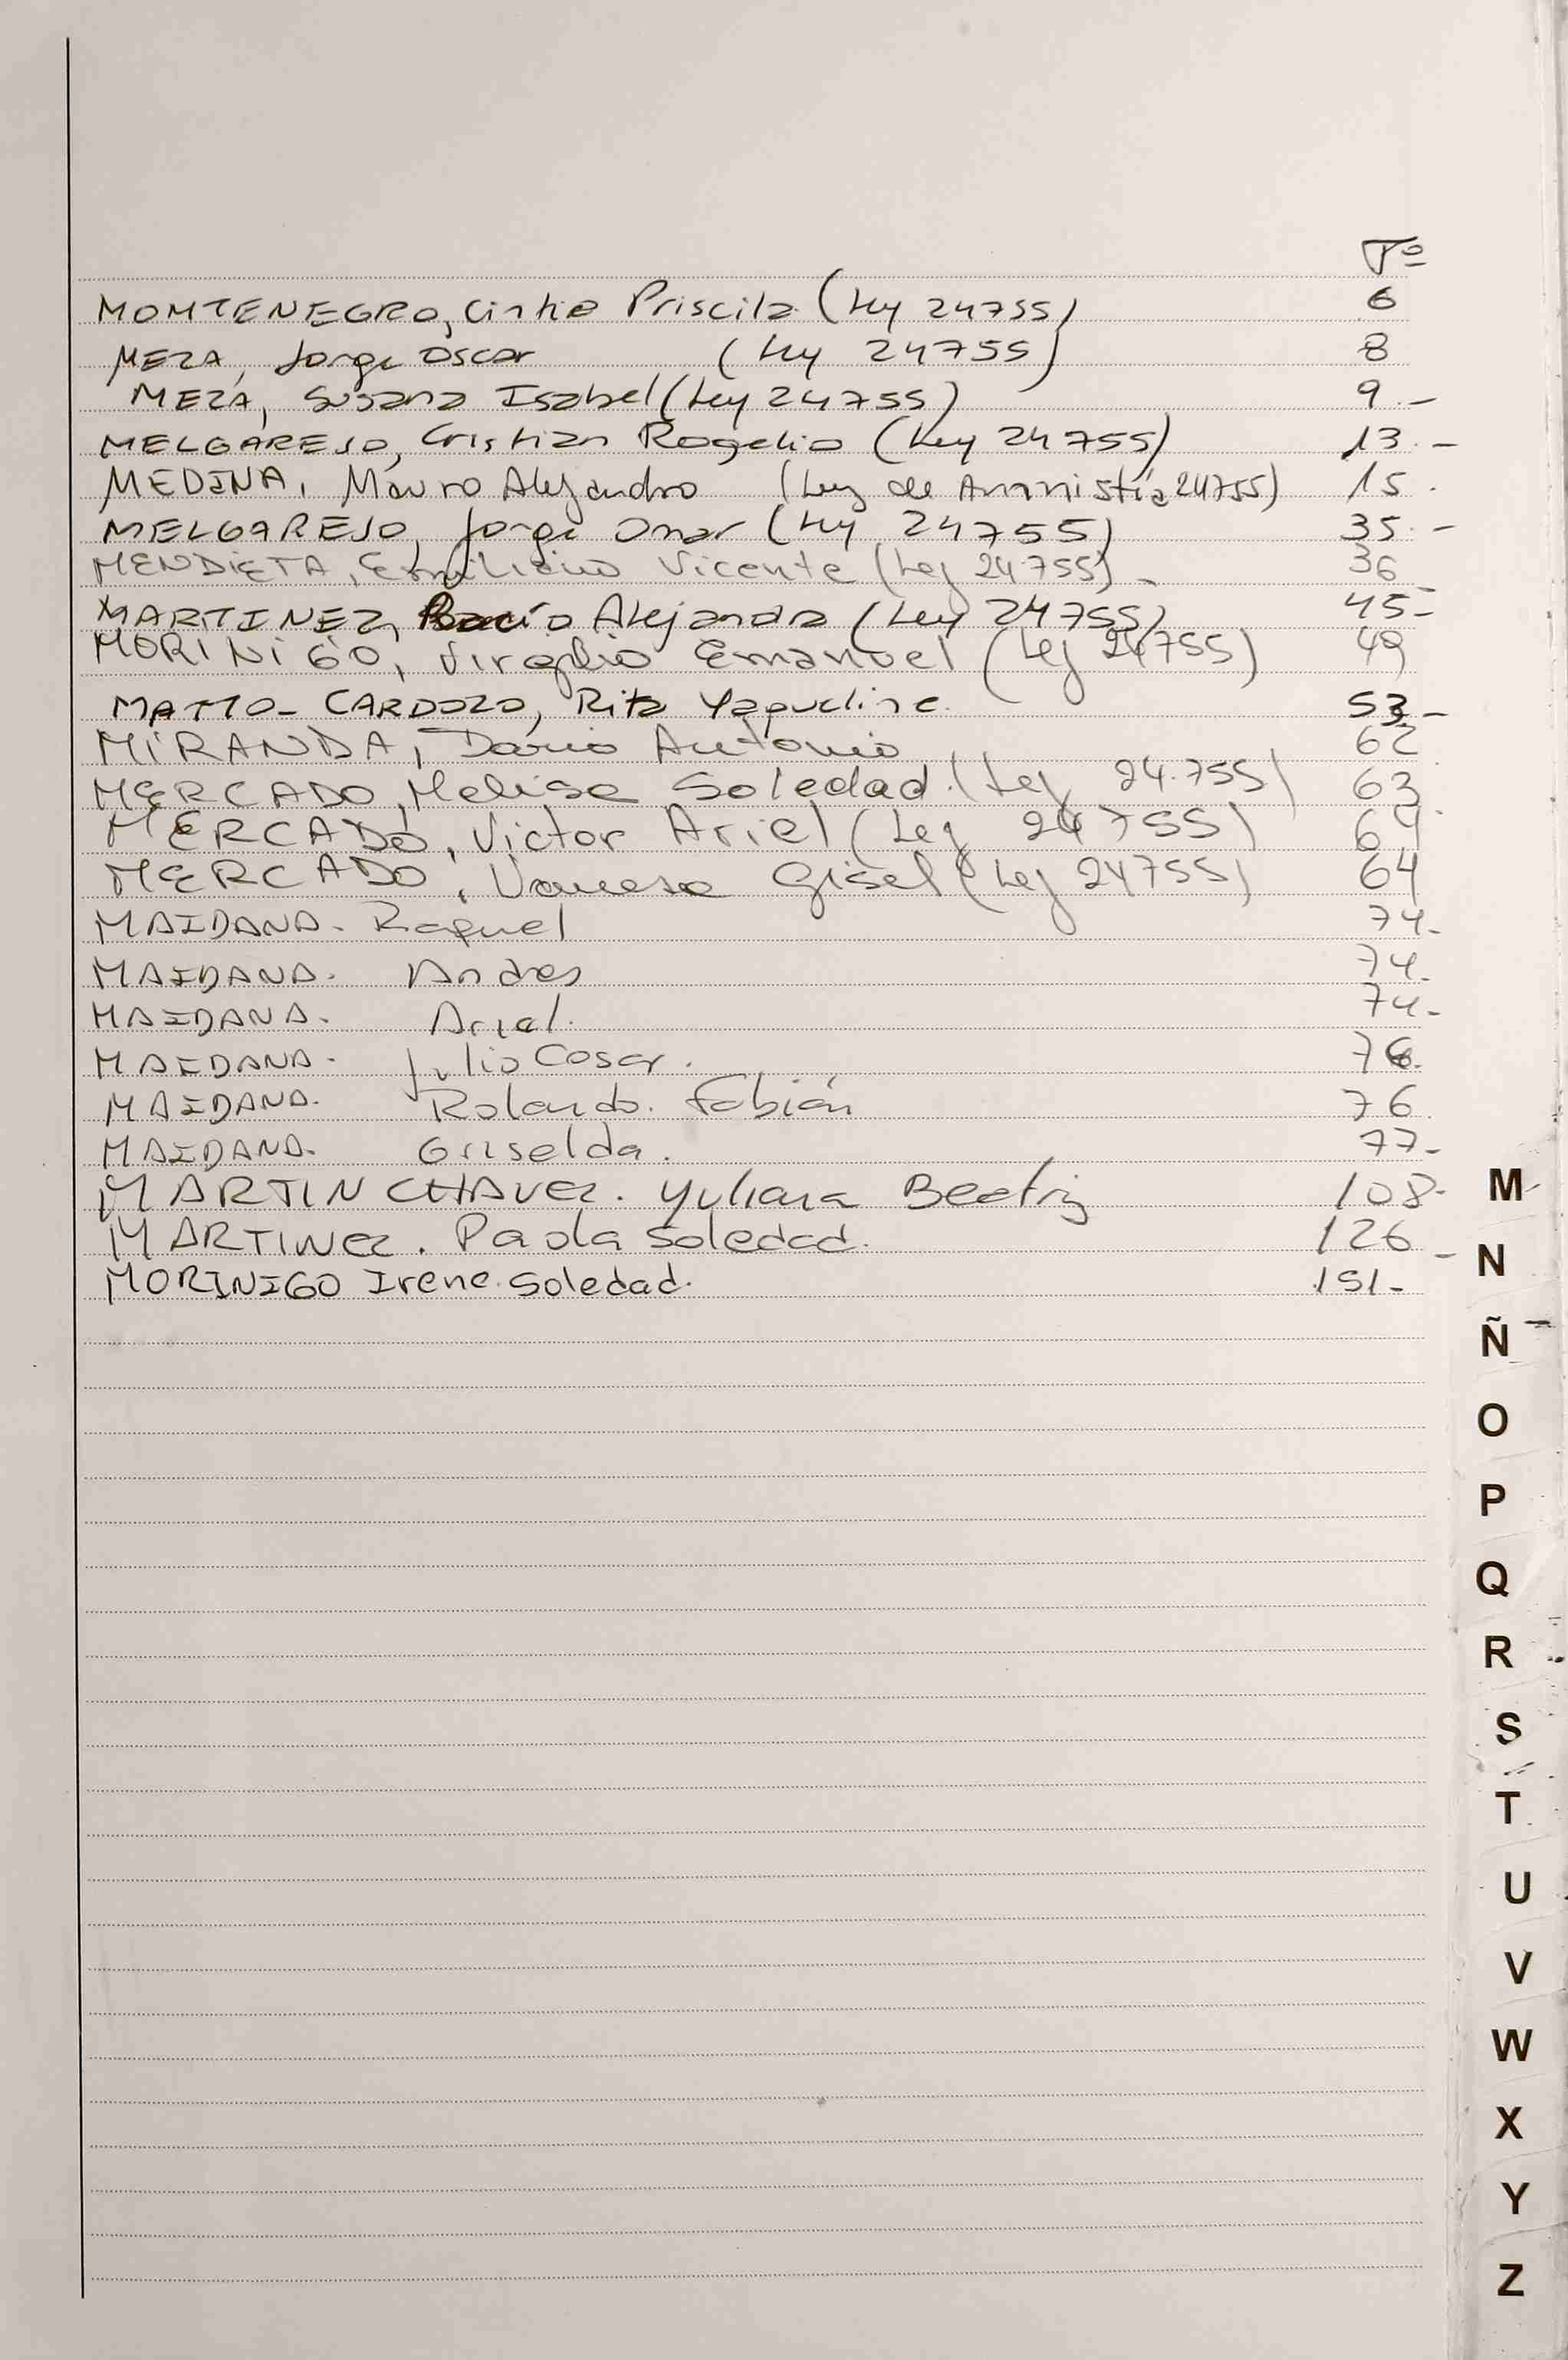 Fº
MONTENEGRO, Cintia Priscila (Ley 24755) 6
MEZA, Jorge Oscar (Ley 24755) 8
MEZA, Susana Isabel (Ley 24755) 9.-
MELGAREJO, Cristian Rogelio (Ley 24755) 13.-
MEDINA, Mauro Alejandro (Ley de Amnistía 24755) 15.
MELGAREJO, Jorge Omar (Ley 24755) 35.-
MENDIETA, Emiliano Vicente (Ley 24755)- 36
MARTINEZ, Rocío Alejandra (Ley 24755) 45-
MORINIGO, Virgilio Emanuel (Ley 24755) 49
MATTO-CARDOZO, Rita Yaqueline 53-
MIRANDA, Dario Antonio 62
MERCADO, Melisa Soledad (Ley 24.755) 63
MERCADO, Victor Ariel (Ley 24755) 64
MERCADO, Vanesa Gisel (Ley 24755) 64
MAIDANA. Raquel 74-
MAIDANA. Andres 74-
MAIDANA. Ariel. 74-
MAIDANA. Julio Cesar. 76.
MAIDANA. Rolando. Fabián 76.
MAIDANA. Griselda. 77-
MARTIN CHAVEZ. Yuliana Beatriz 108-
MARTINEZ. Paola Soledad. 126-
MORINIGO Irene Soledad. 151-
M
N
Ñ
O
P
Q
R
S
T
U
V
W
X
Y
Z